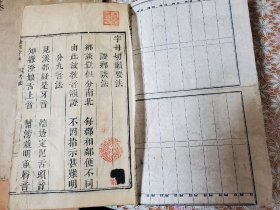 字母切韻要法
證鄉談法
鄉談豈但分南北 每郡相鄰便不同
由此故教音韻證 不因指示甚難明
分九音法
見溪郡疑是牙音 端透定泥舌頭音
知徹澄娘舌上音 幫滂並明重唇音